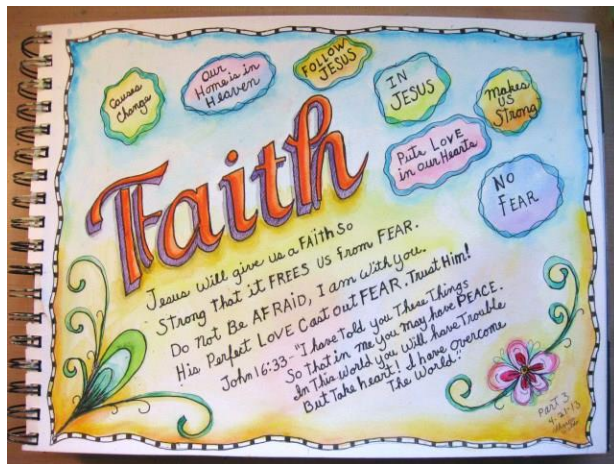 Causes
Change
Our
Home is in
Heaven
FOLLOW
JESUS
IN
JESUS
Makes
US
Strong
Puts LOVE
in our Hearts
NO
FEAR
Faith
Jesus Will give us a FAith So
Strong That it FREES Us From FEAR.
Do Not Be AFRAiD, I am With You.
His Perfect LOVE Cast out FEAR. Trust Him!
John 16:33 - "I have Told you These Things
So That in Me You May have PEACE.
In This World you Will have Trouble
But Take heart! I have Overcome
The World."
Part 3
4-21-13